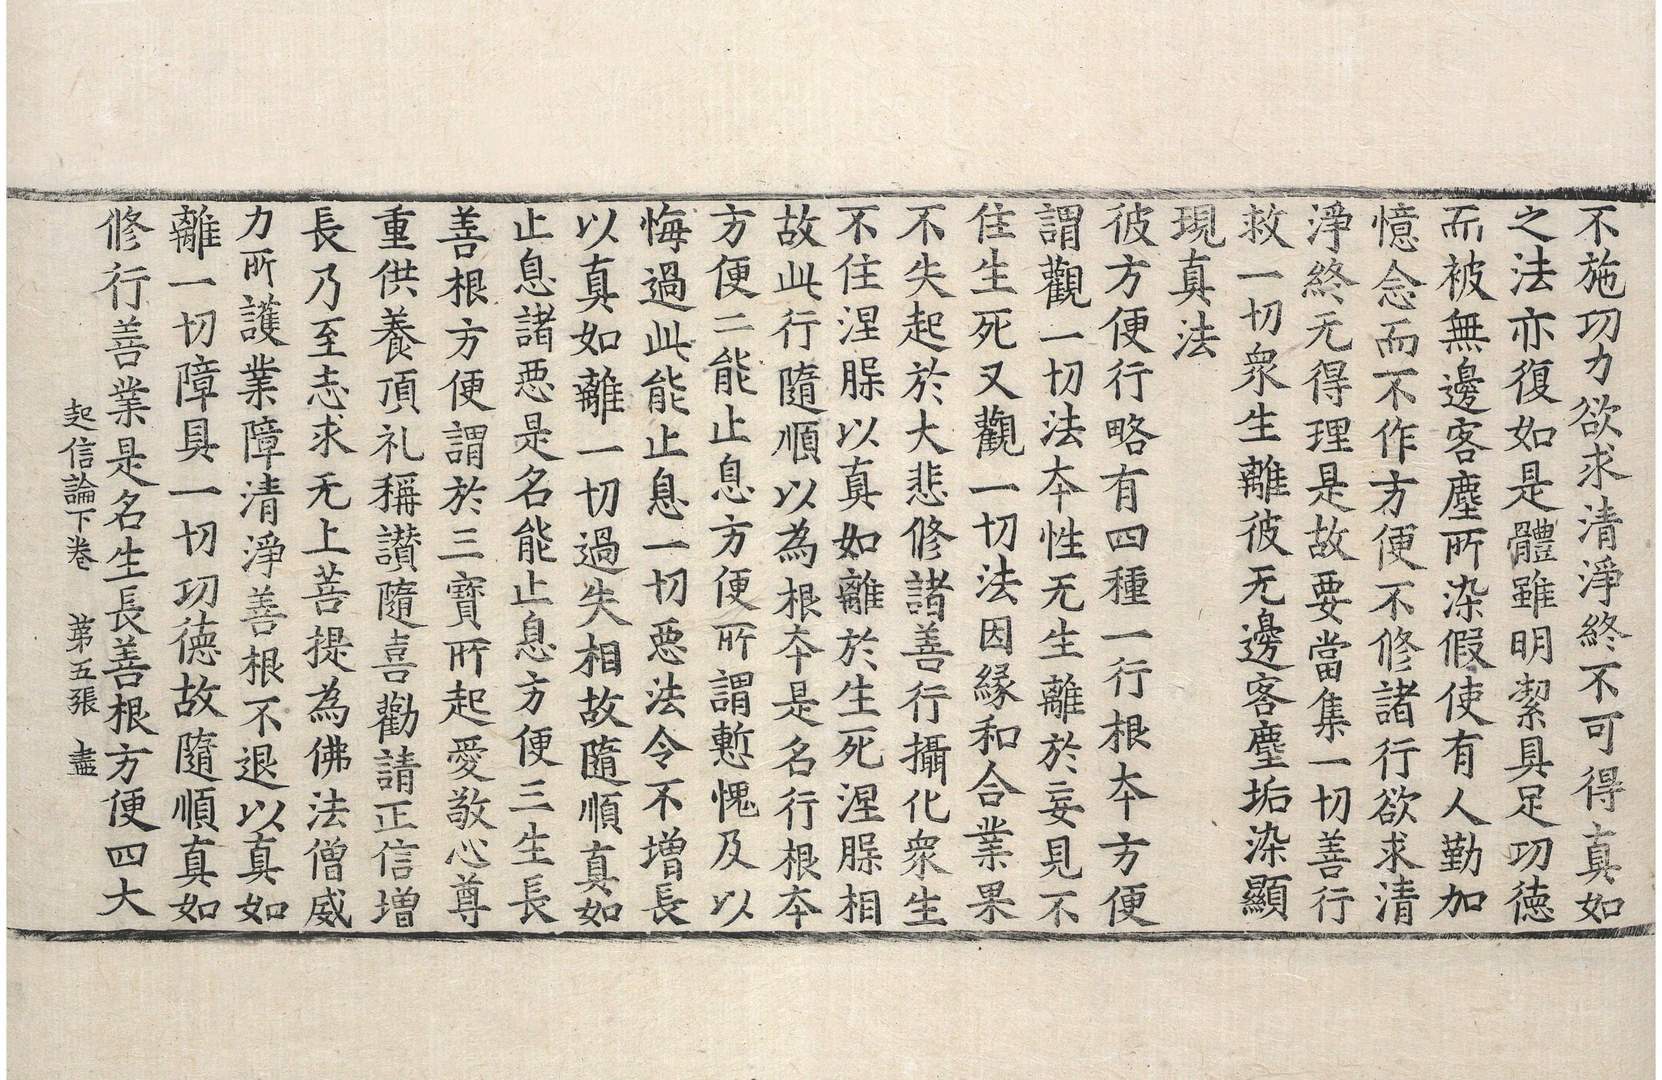 不施功力欲求清淨終不可得真如
之法亦復如是體雖明潔具足功德
而被無邊客塵所染假使有人勤加
憶念而不作方便不修諸行欲求清
淨終无得理是故要當集一切善行
救一切衆生離彼无邊客塵垢染顯
現真法
彼方便行略有四種一行根本方便
謂觀一切法本性无生離於妄見不
住生死又觀一切法因緣和合業果
不失起於大悲修諸善行攝化衆生
不住涅槃以真如離於生死涅槃相
故此行隨順以為根本是名行根本
方便二能止息方便所謂慙愧及以
悔過此能止息一切惡法令不增長
以真如離一切過失相故隨順真如
止息諸惡是名能止息方便三生長
善根方便謂於三寶所起愛敬心尊
重供養頂礼稱讃隨喜勸請正信增
長乃至志求无上菩提為佛法僧威
力所護業障清淨善根不退以真如
離一切障具一切功德故隨順真如
修行善業是名生長善根方便四大
起信論下卷 第五張 盡